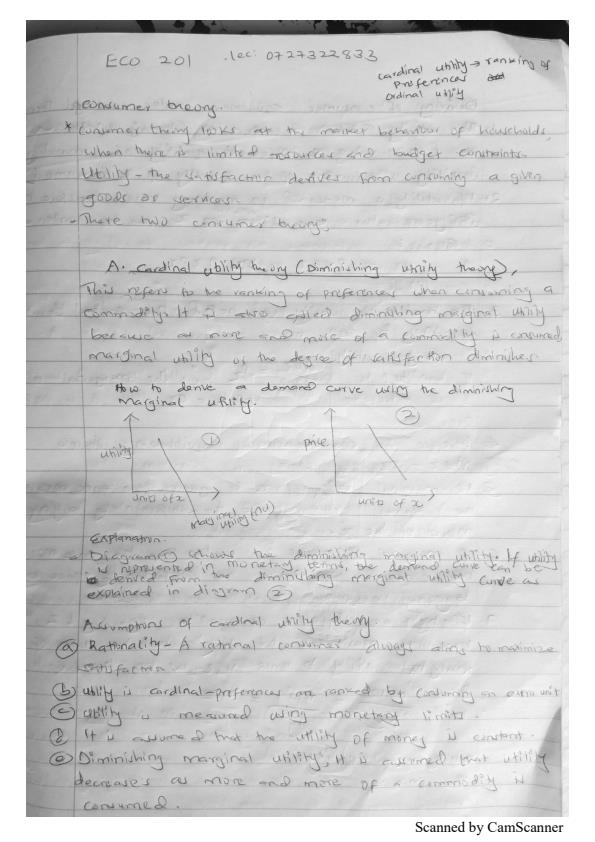 ECO 201 .lec: 0727322833
Cardinal utility → ranking of
preferences
Ordinal utility
Consumer theory.
* Consumer theory looks at the market behaviour of households,
when there is limited resources and budget constraints.
Utility - the satisfaction derives from consuming a given
goods or services.
- There two consumer theory;
A. Cardinal utility theory (Diminishing utility theory),
This refers to the ranking of preferences when consuming a
commodity. It is also called diminishing marginal utility
because as more and more of a commodity is consumed
marginal utility or the degree of satisfaction diminishes.
How to derive a demand curve using the diminishing
Marginal utility.
① ②
utility price
units of x units of x
marginal
utility (MU)
Explanation.
- Diagram ① shows the diminishing marginal utility. If utility
is represented in monetary terms, the demand curve can be
derived from the diminishing marginal utility curve as
explained in diagram ②
Assumptions of cardinal utility theory.
ⓐ Rationality - A rational consumer always aims to maximize
satisfaction.
ⓑ utility is cardinal - preferences are ranked by consuming an extra unit
ⓒ utility is measured using monetary limits.
ⓓ It is assumed that the utility of money is constant.
ⓔ Diminishing marginal utility; It is assumed that utility
decreases as more and more of a commodity is
consumed.
Scanned by CamScanner